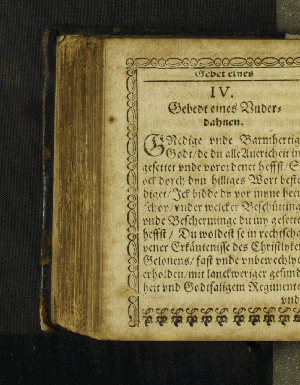 Gebet eines
IV.
Gebedt eines Vnder-
dahnen.
GNedige vnde Barmhertig
Godt/de du alle Auericheit in
gesettet vnde vorordenet heffst/
ock dorch dyn hilliges Wort
diget/Jck bidde dy vor myne
vnder welcker Beschütting
vnde Bescherminge du my gesette
heffst/ Du woldest se in rechtscha
vener Erkäntenisse des Christlyken
Gelouens/fast vnde vnbewechlyk
erholden/mit lanckweriger gesund
heit vnd Godtsaligem Regimente
vnd